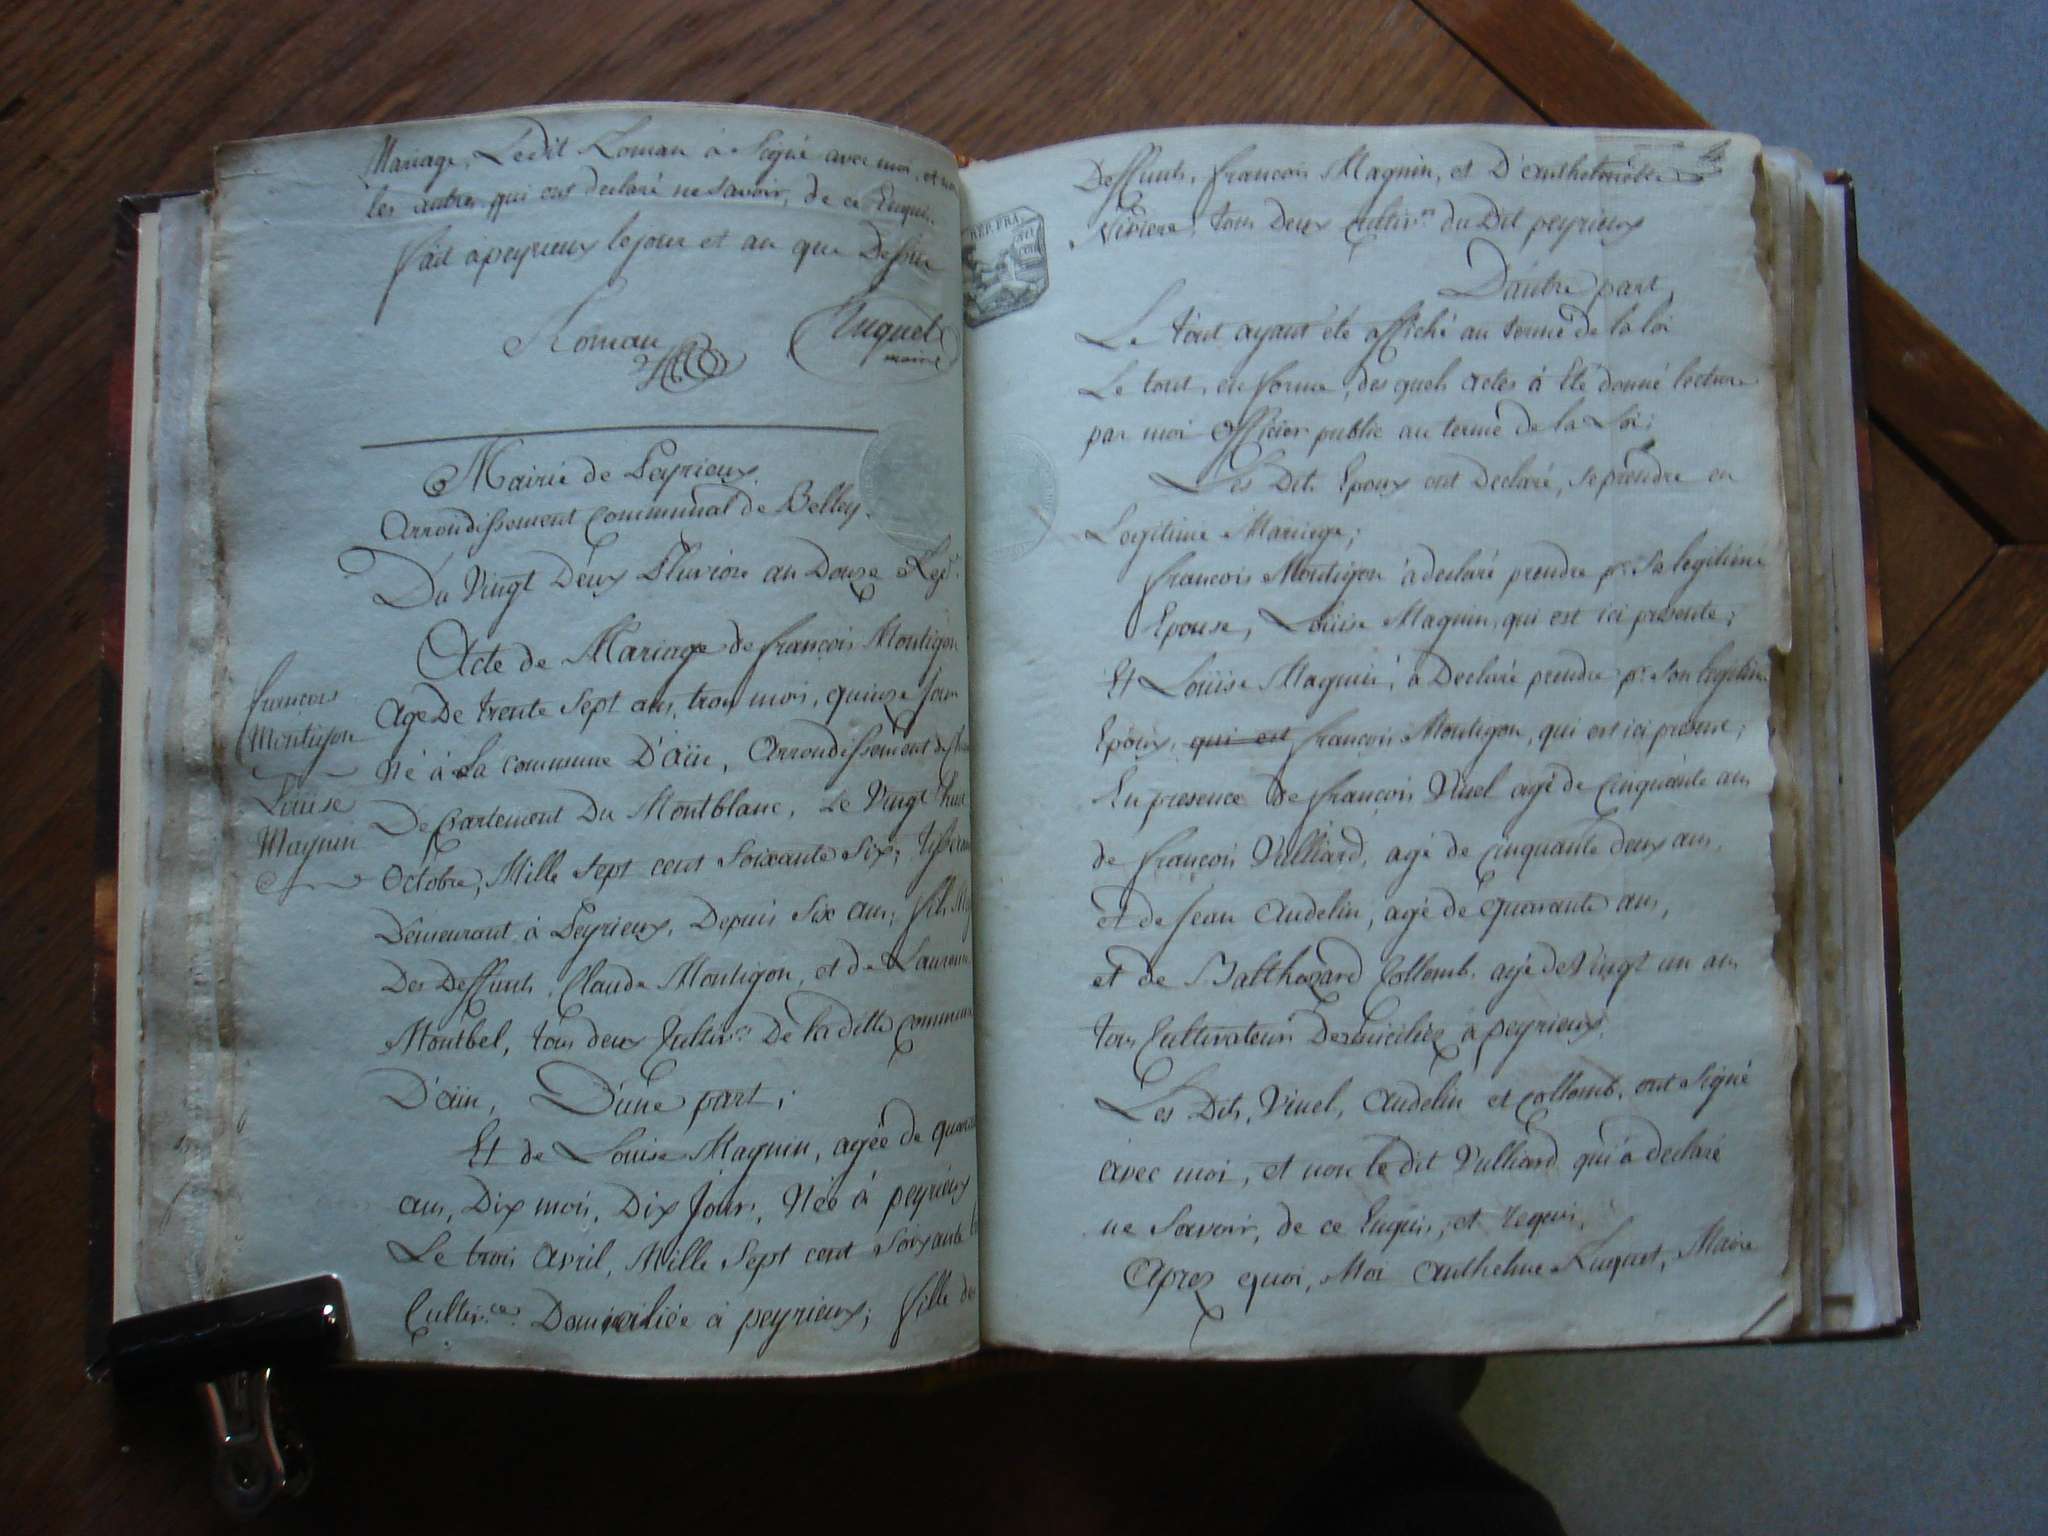 Mariage, Ledit Roman à Signé avec moi, et non
les autres qui ont declaré ne Savoir, de ce Enquis.
fait à peyrieux le jour et an que Dessus
Roman
Luquet
maire
Mairie de Peyrieux.
Arrondissement Communal de Belley.
Du Vingt Deux Pluviose an Douze Rep.
Acte de Mariage de françois Montigon
Agé De trente Sept ans, trois mois, quinze jours
Né à La commune D'aïn, Arrondissement de
Departement Du Montblanc, Le Vingt huit
Octobre, Mille Sept cent Soixante Six; tisseran
Demeurant à Peyrieux, Depuis Six ans; fils
Des Deffunts, Claude Montigon, et de Laurence
Montbel, tous deux Cultiv.rs De la ditte commune
D'aïn, D'une part;
Et de Louise Magnin, agée de quarante
ans, Dix mois, Dix Jours, Née à peyrieux
Le trois Avril, Mille Sept cent Soixante
Cultiv.ce Domiciliée à peyrieux; fille des
françois
Montigon
Louise
Magnin
REP. FRA.
Deffunts, françois Magnin, et D'anthelmette
Niviere, tous Deux Cultiv.rs du Dit peyrieux
D'autre part,
Le tout ayant été affiché au terme de la loi
Le tout, en forme, des quels actes à Eté donné lecture
par moi Officier public au terme de la Loi;
Les Dits Epoux ont Declaré, se prendre en
Legitime Mariage;
françois Montigon à declaré prendre pr. Sa legitime
Epouse, Louise Magnin, qui est ici presente;
Et Louise Magnin, à Declaré prendre pr. Son legitime
Epoux, qui est françois Montigon, qui est ici present;
En presence De françois Vinel agé de Cinquante ans
de françois Vulliard, agé de cinquante deux ans,
et de Jean Audelin, agé de quarante ans,
et de Balthazard Collomb, agé de Vingt un ans
tous Cultivateurs Domiciliés à peyrieux.
Les Dits, Vinel, Audelin et Collomb, ont Signé
avec moi, et non le dit Vulliard qui à declaré
ne Savoir, de ce Enquis, et requis,
Apres quoi, Moi Anthelme Luquet, Maire